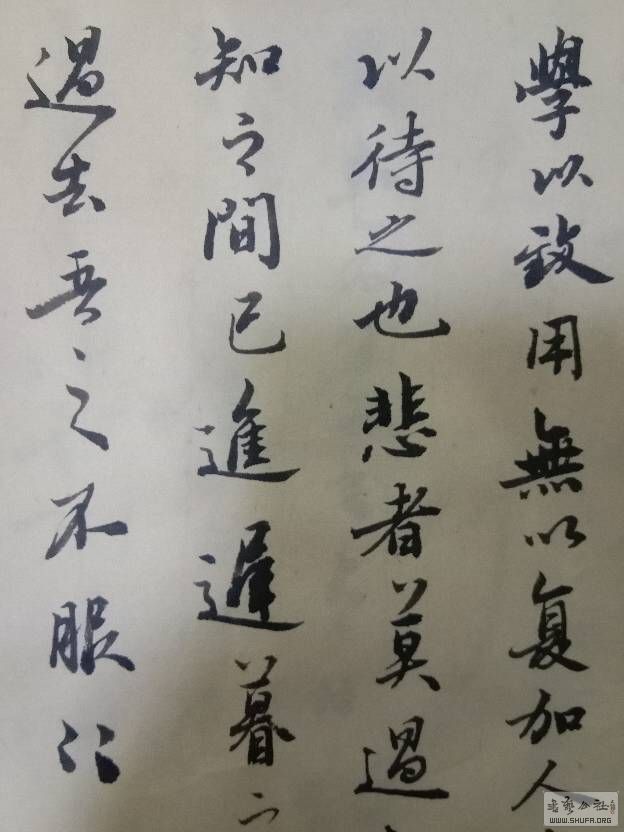 學以致用無以复加人
以待之也悲者莫過
知之間已進遲暮之
過去吾之不服
书艺公社
WWW.SHUFA.ORG